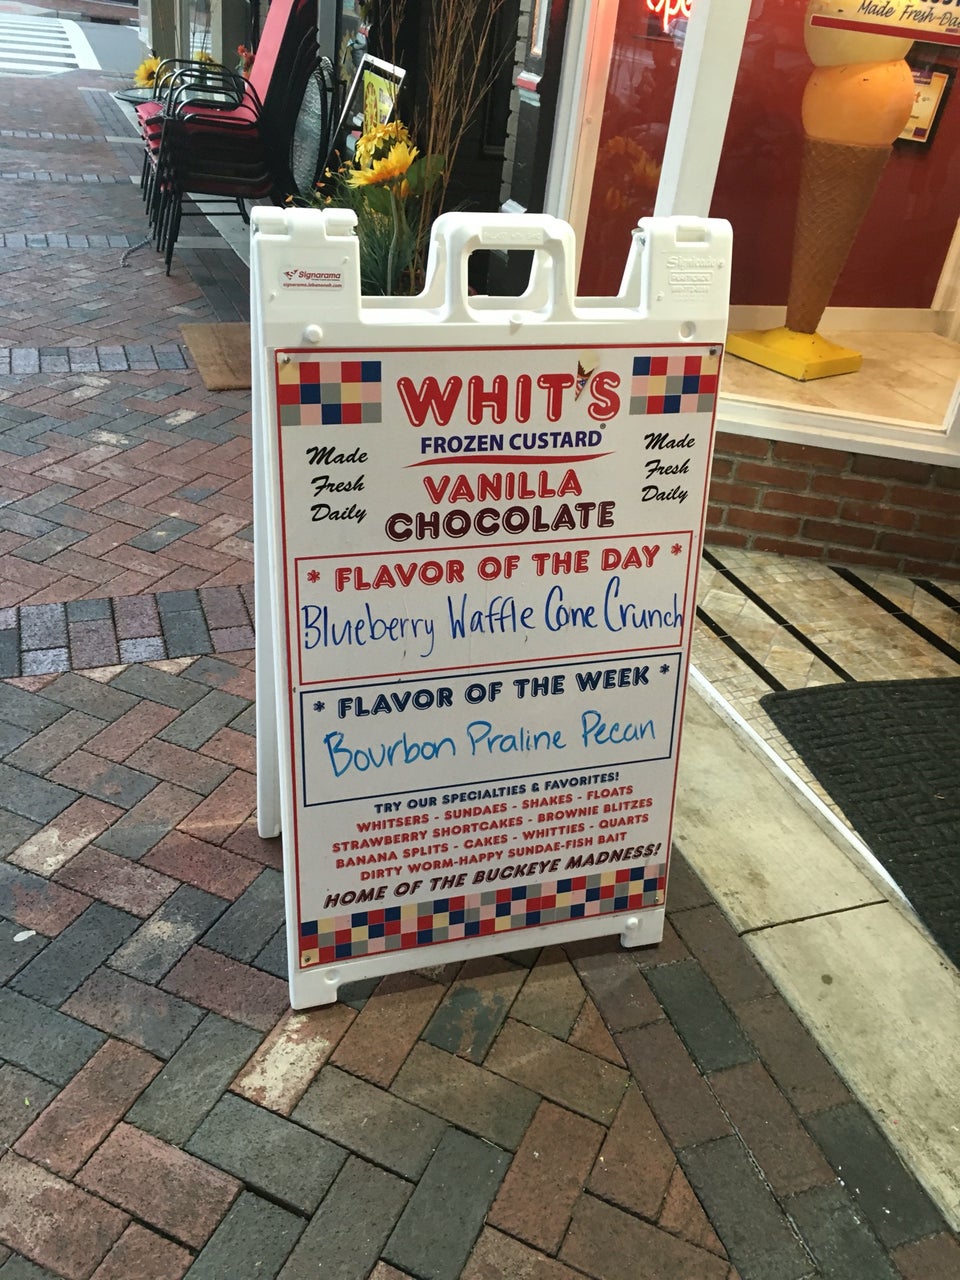 ope
Made Fresh Da
Signarama
WHIT'S
FROZEN CUSTARD
Made
Fresh
Daily
Made
Fresh
Daily
VANILLA
CHOCOLATE
* FLAVOR OF THE DAY *
Blueberry Waffle Cone Crunch
* FLAVOR OF THE WEEK *
Bourbon Praline Pecan
TRY OUR SPECIALTIES & FAVORITES!
WHITSERS - SUNDAES - SHAKES - FLOATS
STRAWBERRY SHORTCAKES - BROWNIE BLITZES
BANANA SPLITS - CAKES - WHITTIES - QUARTS
DIRTY WORM-HAPPY SUNDAE-FISH BAIT
HOME OF THE BUCKEYE MADNESS!